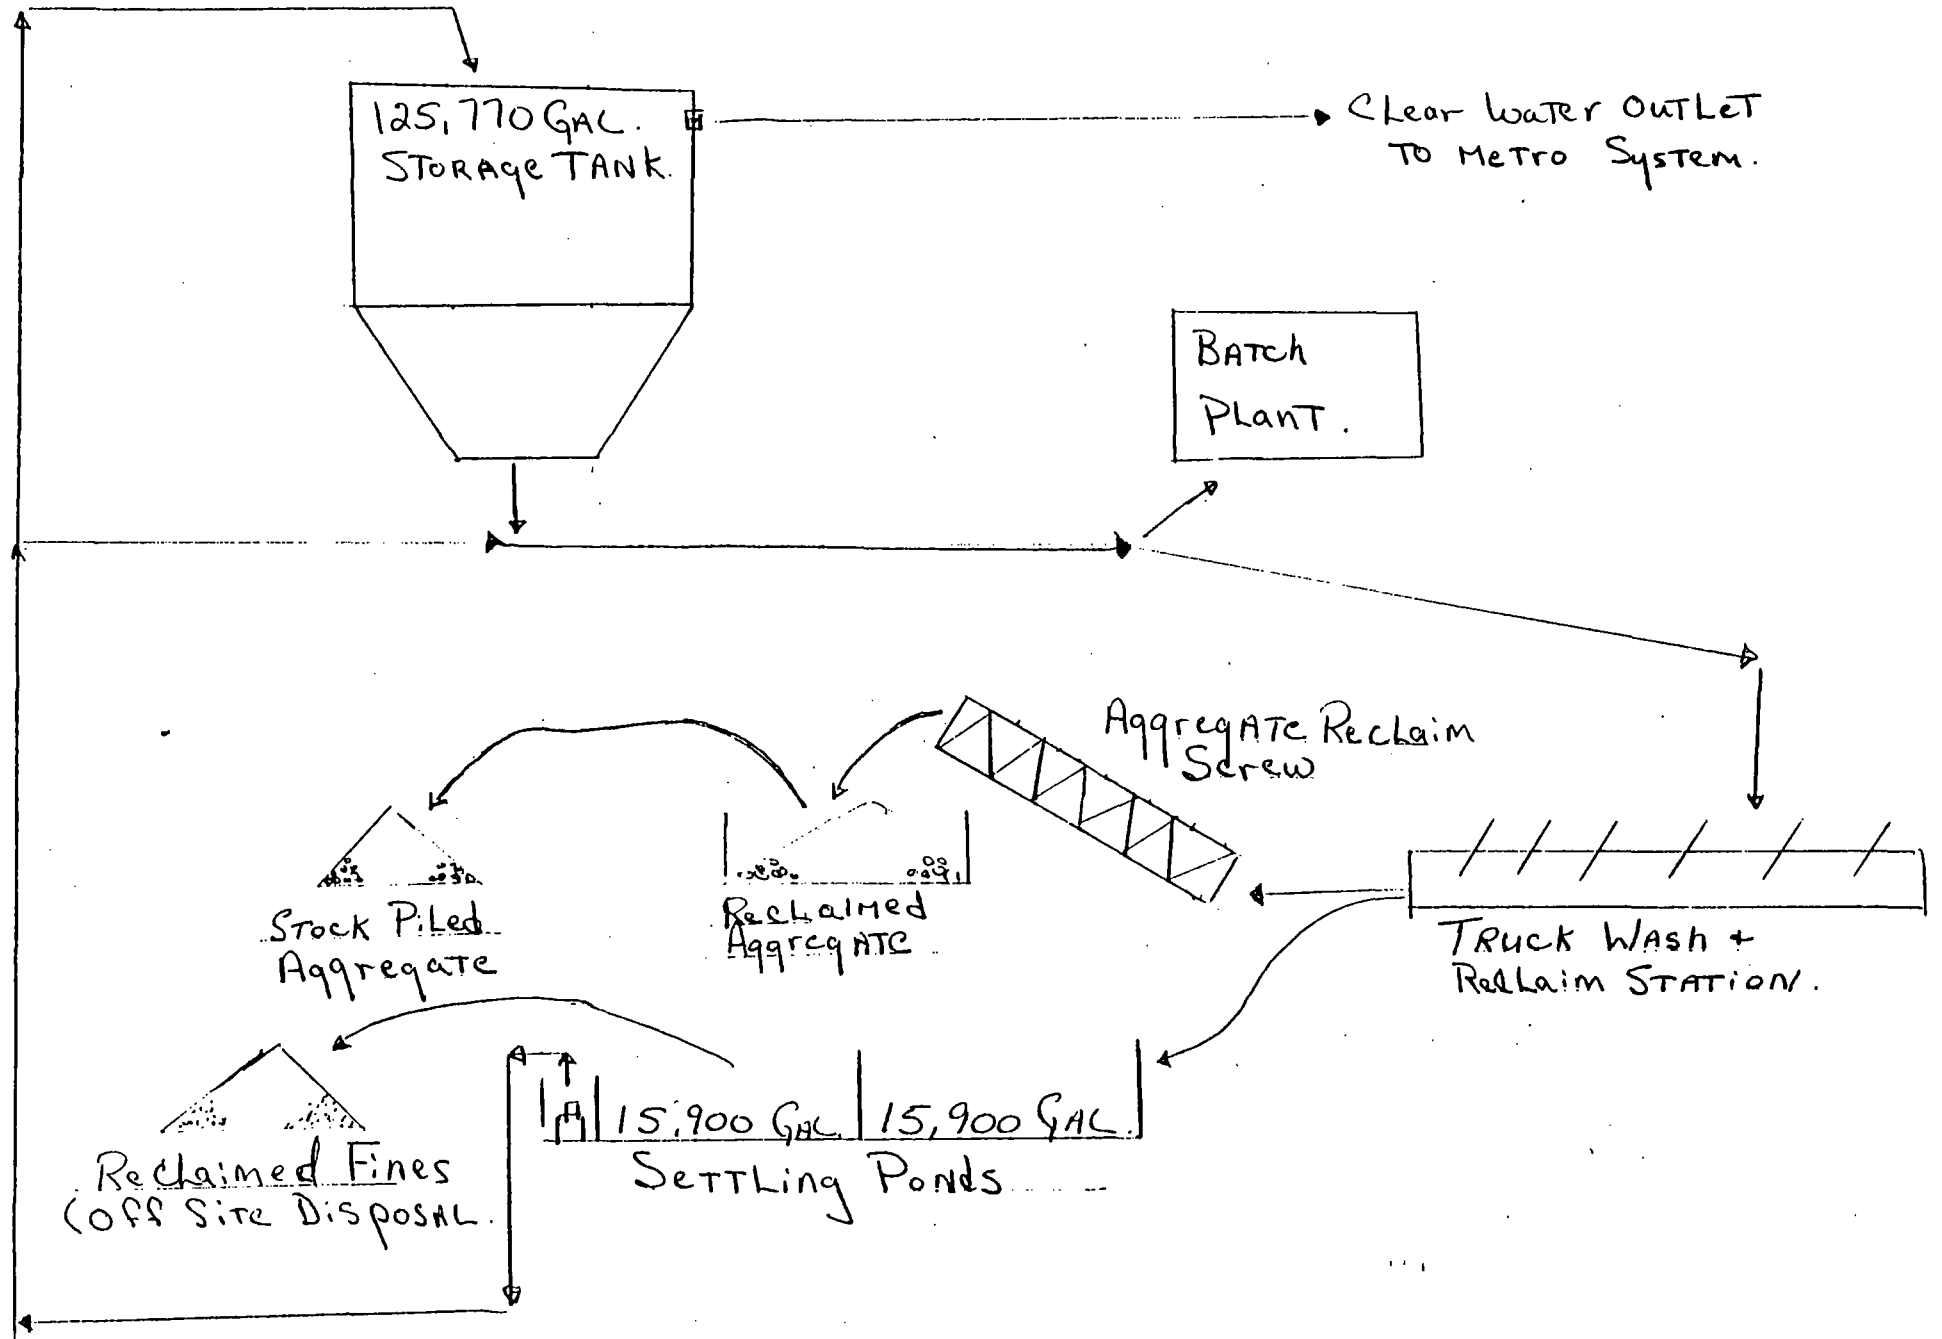 125,770 GAL.
STORAGE TANK.
CLear WATer OUTLeT
TO MeTro SysTem.
BATch
PLanT.
AggregATe RecLaim
Screw
STock PiLed
AggregATe
RecLaimed
AggregATe
TRUCK WAsh +
RecLaim STATion.
15,900 GAL.
15,900 GAL.
SeTTLing Ponds
RecLaimed Fines
(OFF SiTe DisposAL.